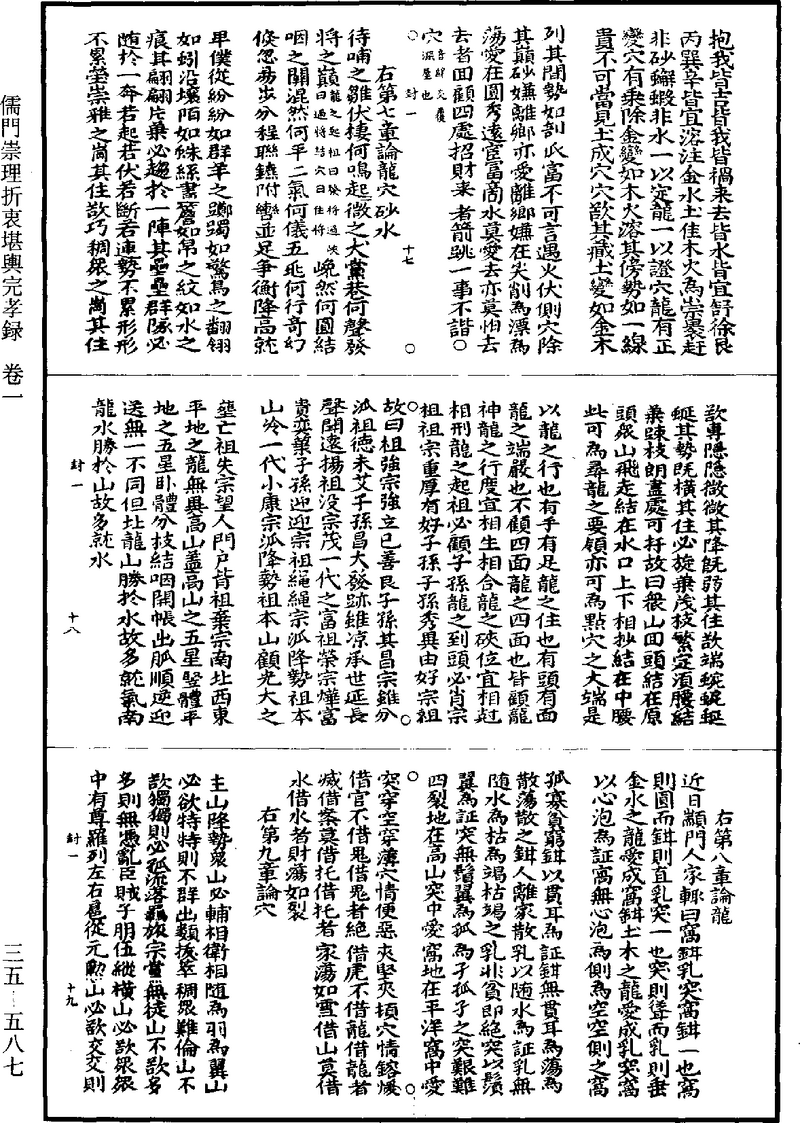 儒門崇理折衷堪輿完孝録 卷一
三五—五八七
抱我皆吉皆我皆禍来去皆水皆宜舒徐艮
丙巽辛皆宜溶注金水土佳木火為崇裹赶
非砂蠏蝦非水一以定龍一以證穴龍有正
變穴有乘除金變如木火溶其傍勢如一線
貴不可當見土成穴穴欲其藏土變如金木
列其閗勢如剖瓜富不可言遇火伏側穴除
其巔砂嫌離鄉亦愛離鄉嫌在尖削為漂為
蕩愛在圓秀遠宦富商水莫愛去亦莫怕去
去者回顧四處招財来者箭跳一事不諧○
右第七章論龍穴砂水
待哺之雛伏棲何鳴起微之犬黨巷何聲發
咽之閗混然何平二氣何儀五飛何行奇幻
倐忽易步分程聯鑣附轡並足争衡降高就
卑僕從紛紛如群羊之躑躅如驚鳥之翻翎
如蚓沿壤陌如蛛絲罥簷如帛之紋如水之
痕其翩翩片乘必趨於一陣其壘壘群隊必
随於一奔若起若伏若斷若連勢不累形形
不累塋崇雅之崗其住欲巧稠衆之崗其住
十七
封一
欲專隱隱微微其降旣弱其住欲端蜿蜒蜓
蜒其勢旣横其住必旋乗茂枝繁定湏腰結
乗踈枝朗盡處可扦故曰衆山回頭結在原
頭衆山飛走結在水口上下相抄結在中腰
此可為尋龍之要領亦可為點穴之大端是
以龍之行也有手有足龍之住也有頭有面
龍之端嚴也不顧四面龍之四面也皆顧龍
神龍之行度宜相生相合龍之硤位宜相尅
相刑龍之起祖必顧子孫龍之到頭必肖宗
祖祖宗重厚有好子孫子孫秀異由好宗祖
故曰祖強宗強立已善良子孫其昌宗雖分
派祖徳未艾子孫昌大發跡雖凉承世延長
聲聞遠揚祖没宗茂一代之富祖榮宗燁富
貴奕葉子孫迎迎宗祖繩繩宗派降勢祖本
山冷一代小康宗派降勢祖本山顧光大之
塟亡祖失宗望人門戶背祖棄宗南北西東
平地之龍無異高山盖高山之五星竪體平
地之五星卧體分枝結咽開帳出脈順逆迎
送無一不同但北龍山勝於水故多就氣南
龍水勝於山故多就水
十八
封一
右第八章論龍
近日顓門人家輙曰窩鉗乳突窩鉗一也窩
則圓而鉗則直乳突一也突則聳而乳則垂
金水之龍愛成窩鉗土木之龍愛成乳突窩
以心泡為証窩無心泡為側為空空側之窩
孤寡貧窮鉗以貫耳為証鉗無貫耳為蕩為
散蕩散之鉗人離家散乳以随水為証乳無
随水為枯為竭枯竭之乳非貧即絶突以鬚
翼為証突無鬚翼為孤為孑孤孑之突艱難
四裂地在高山突中愛窩地在平洋窩中愛
突穿空穿薄穴情便惡夾堅夾頑穴情鎔煖
借官不借鬼借鬼者絶借虎不借龍借龍者
滅借案莫借托借托者家蕩如雪借山莫借
水借水者財蕩如裂
右第九章論穴
主山降勢衆山必輔相衛相随為羽為翼山
必欲特特則不群出類拔萃稠衆難倫山不
欲獨獨則必孤流落羈旅宗黨無徒山不欲多
多則無憑亂臣賊子朋伍縱横山必欲衆衆
中有尊羅列左右扈從元勲山必欲交交則
十九
封一